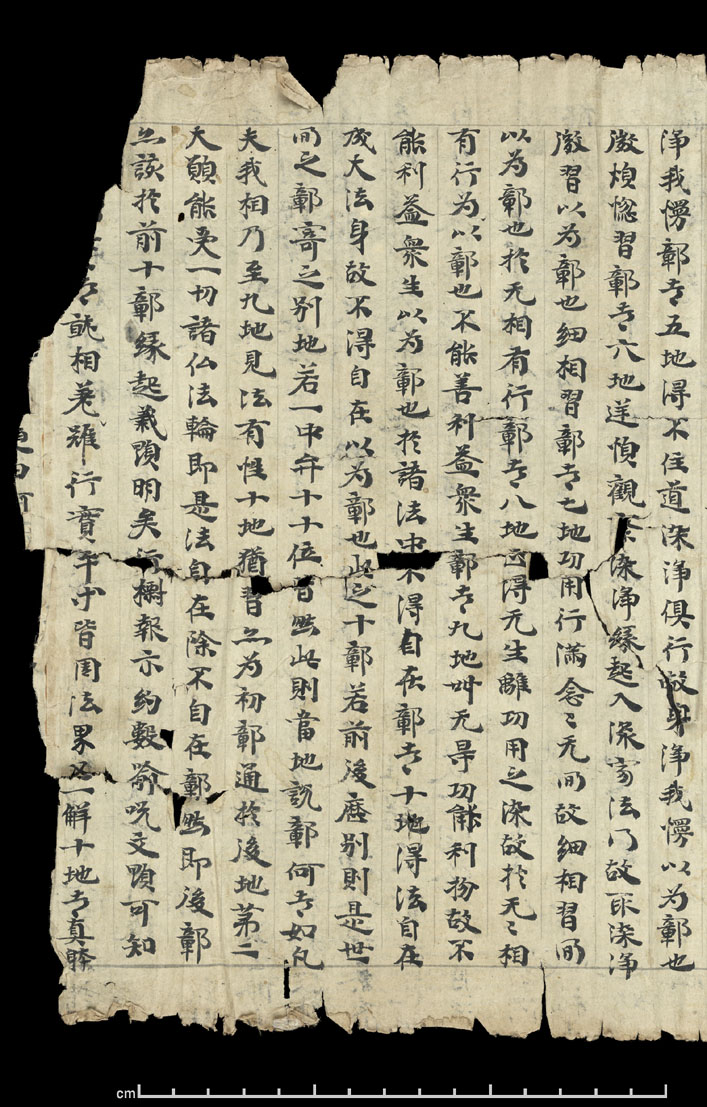 淨我慢鄣者五地得不住道染淨俱行故身淨我慢以為鄣也
微煩惚習鄣者六地逆慎觀察染淨緣起入深密法门故取染淨
微習以為鄣也細相習鄣者七地功用行滿念〻无间故細相習间
以為鄣也扵无相有行鄣者八地得无生離功用之染故扵无〻相
有行為以鄣也不能善利益衆生鄣者九地卌无㝵功能利物故不
能利益衆生以為鄣也扵諸法中不得自在鄣者十地得法自在
成大法身故不得自在以為鄣也此之十鄣若前後麽别則是世
间之鄣寄之别地若一中弁十十位皆然此則當地説鄣何者如凢
夫我相乃至九地見法有性十地猶習亡為初鄣通扵後地苐二
天願能受一切諸仏法輪即是法自在除不自在鄣然即後鄣
亡該扵前十鄣緣起義顕明矣行櫔報亦約數喻呪文顕可知
者就相善雖行實平等皆用法界又一解十地者真